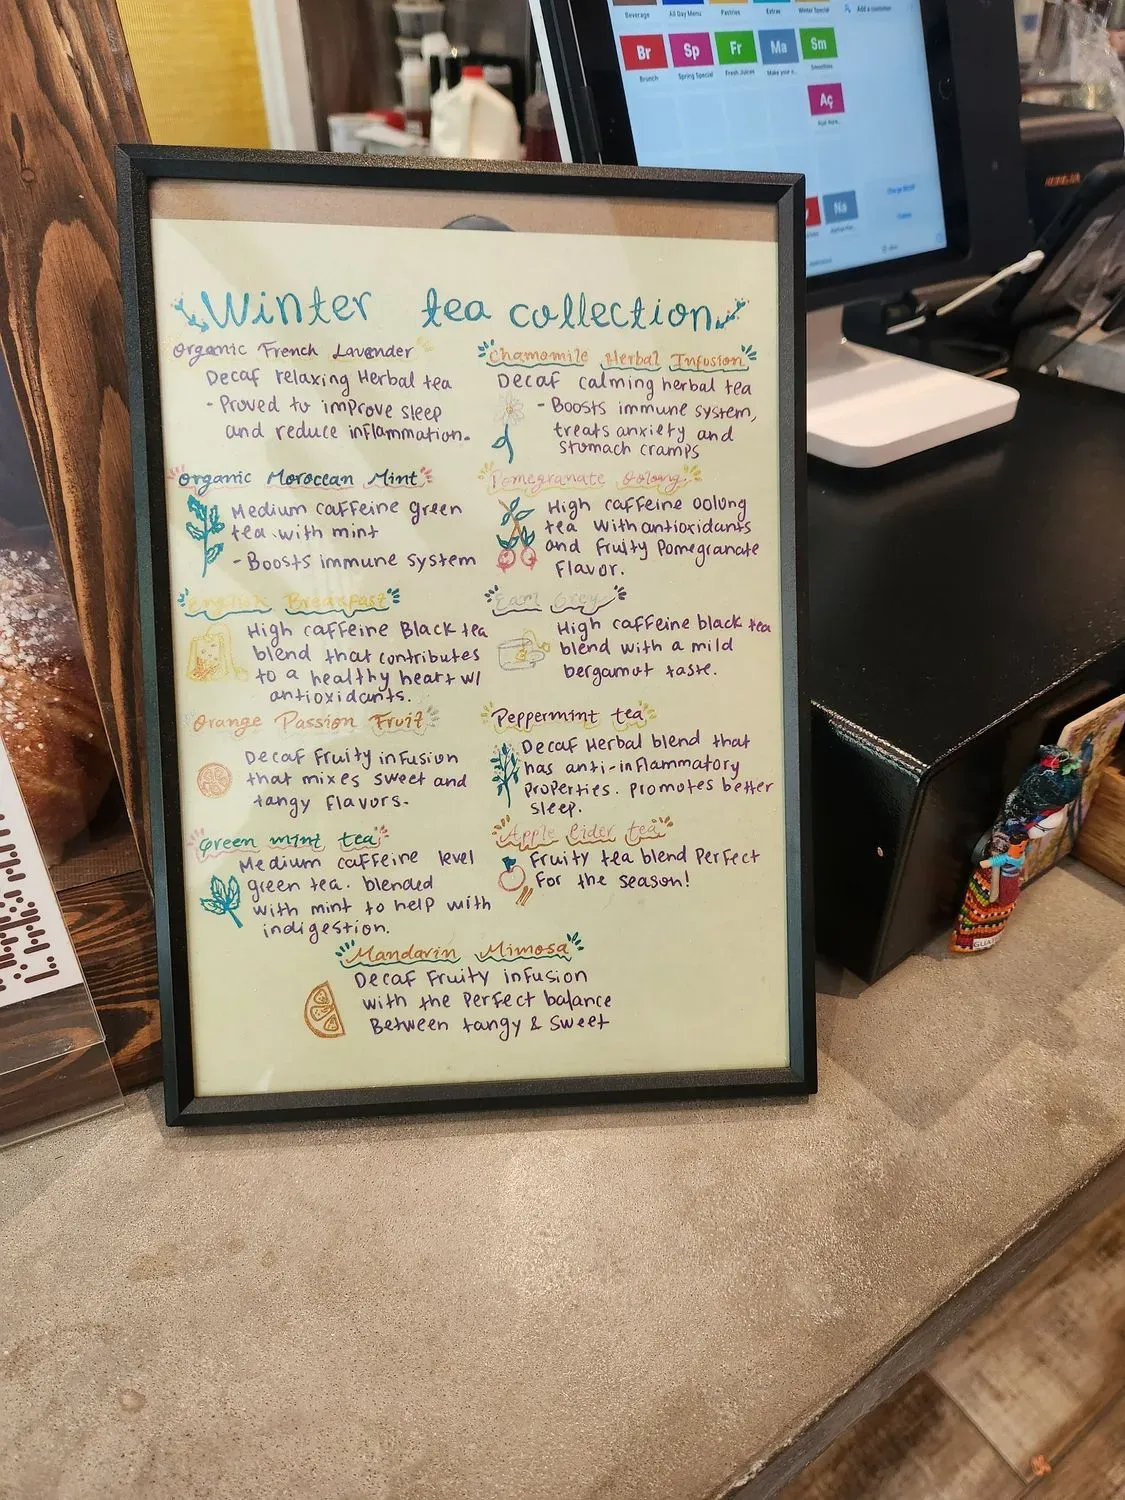 Beverage
All Day Menu
Pastries
Extras
Winter Special
Add a customer
Br
Sp
Fr
Ma
Sm
Brunch
Spring Special
Fresh Juices
Make your o...
Smoothies
Aç
Na
Winter tea collection
Organic French Lavander
Decaf relaxing Herbal tea
- Proved to improve sleep
and reduce inflammation.
Chamomile Herbal Infusion
Decaf calming herbal tea
- Boosts immune system,
treats anxiety and
stomach cramps
Organic Moroccan Mint
Medium caffeine green
tea with mint
- Boosts immune system
Pomegranate Oolong
High caffeine oolong
tea with antioxidants
and fruity Pomegranate
Flavor.
English Breakfast
High caffeine Black tea
blend that contributes
to a healthy heart w/
antioxidants.
Earl Grey
High caffeine black tea
blend with a mild
bergamot taste.
Orange Passion Fruit
Decaf Fruity infusion
that mixes sweet and
tangy flavors.
Peppermint tea
Decaf Herbal blend that
has anti-inflammatory
properties. promotes better
sleep.
Green mint tea
Medium caffeine level
green tea. blended
with mint to help with
indigestion.
Apple Cider tea
Fruity tea blend Perfect
For the season!
Mandarin Mimosa
Decaf Fruity infusion
with the Perfect balance
Between tangy & sweet